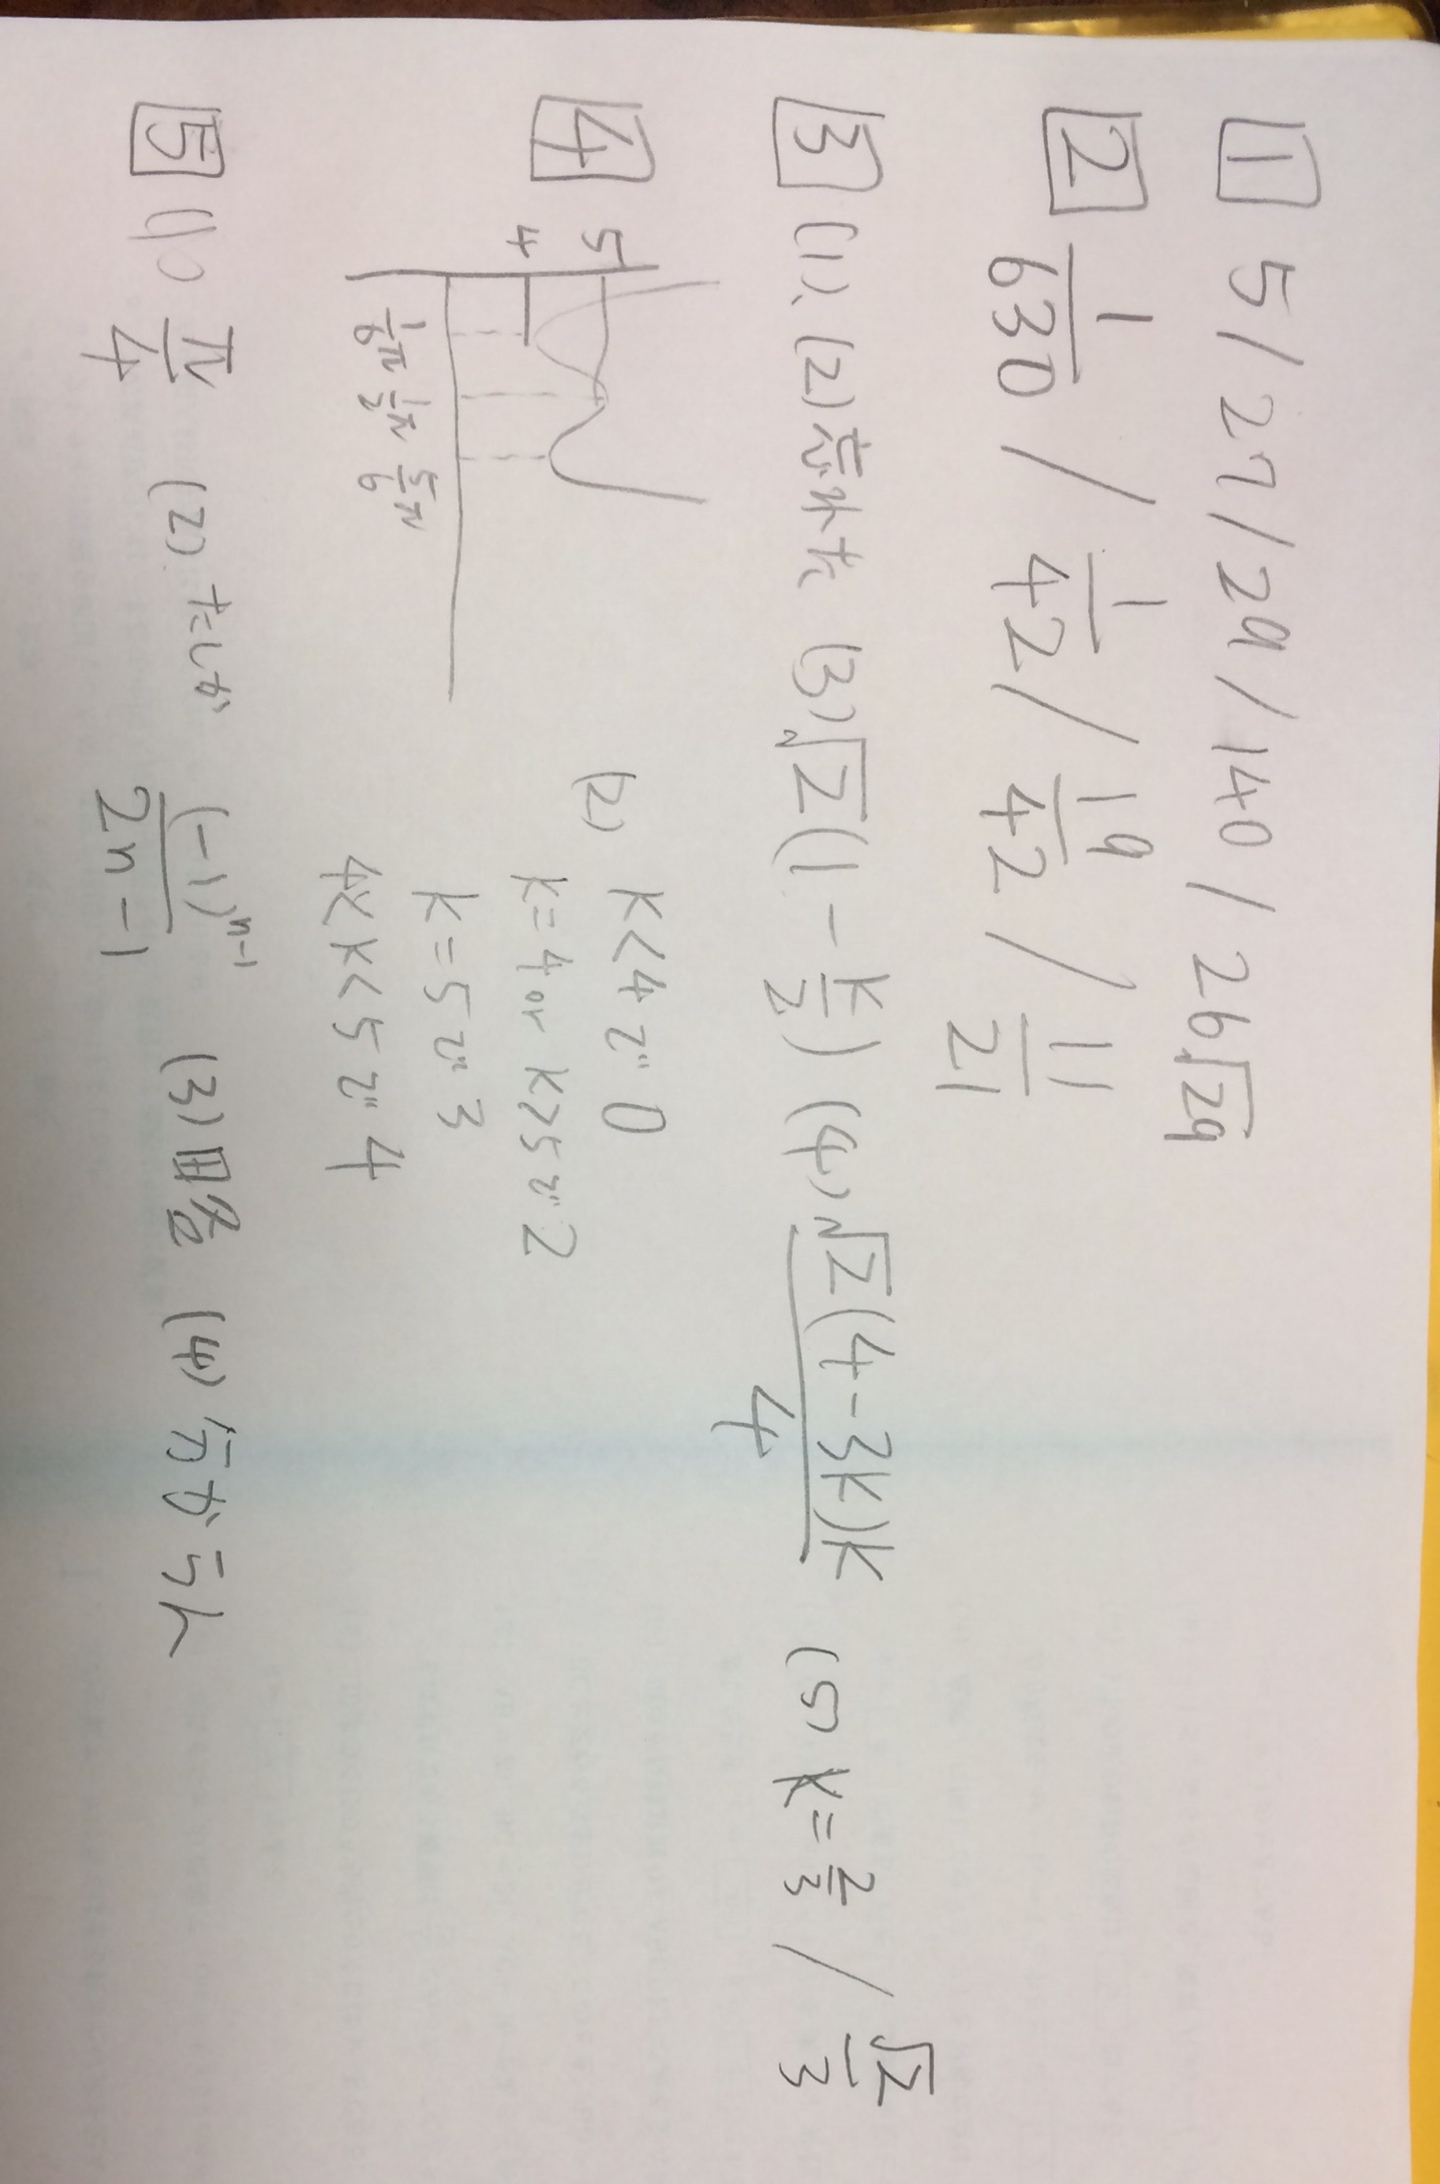 1 5/27/29/140/26√29
2 1/630 / 1/42 / 19/42 / 11/21
3 (1)、(2)忘れた (3)√2(1-k/2) (4)√2(4-3k)k/4 (5) k=2/3 / √2/3
4
5
4
1/6π 1/2π 5/6π
(2) k<4で0
k=4 or k>5で2
k=5で3
4<k<5で4
5 (1) π/4 (2) たしか (-1)ⁿ⁻¹/2n-1 (3)略 (4)分からん